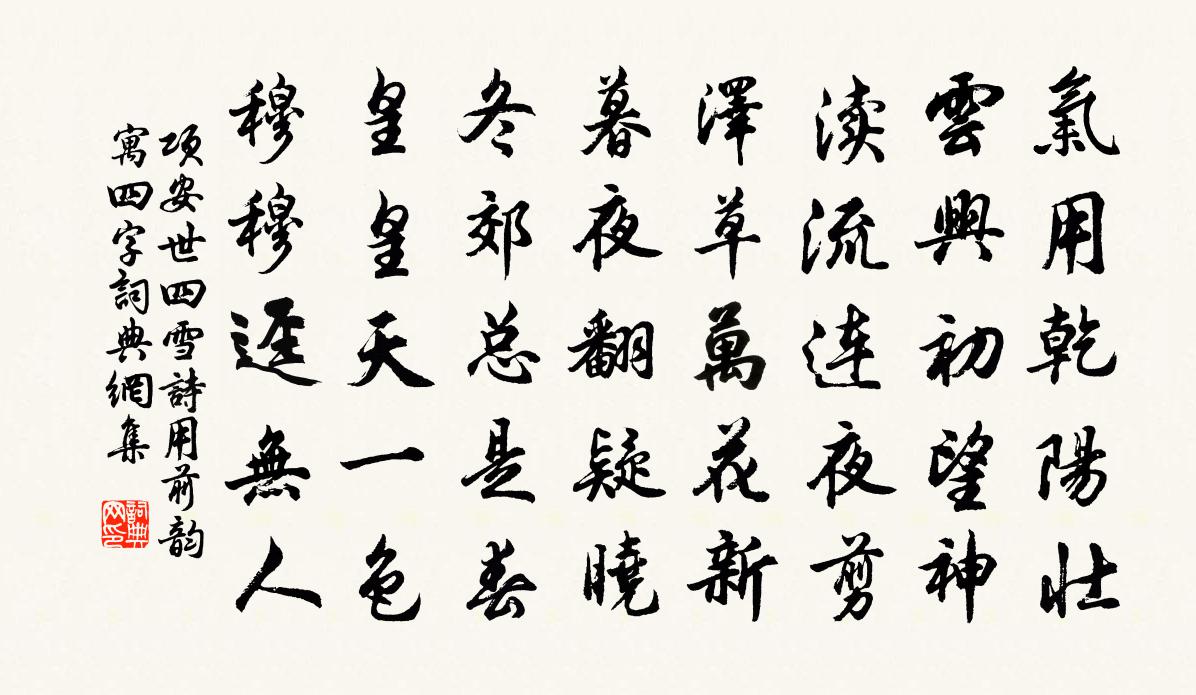 氣用乾陽壯
雲興初望神
渎流连夜剪
澤草萬花新
暮夜翻疑曉
冬郊总是春
皇皇天一色
穆穆逕無人
項安世四雪詩用前韵
寓四字詞典網集
詞典网印